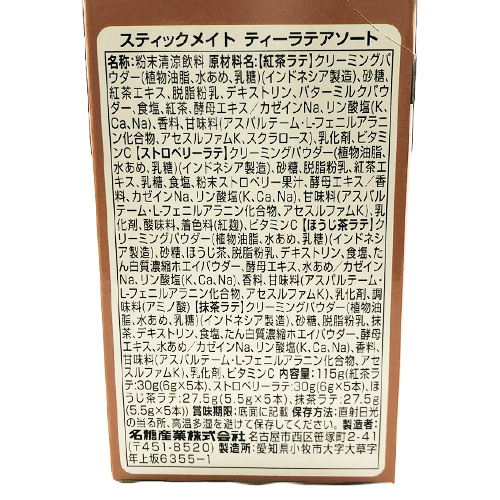 スティックメイト ティーラテアソート
名称:粉末清涼飲料 原材料名:【紅茶ラテ】クリーミングパ
ウダー(植物油脂、水あめ、乳糖)(インドネシア製造)、砂糖、
紅茶エキス、脱脂粉乳、デキストリン、バターミルクパウ
ダー、食塩、紅茶、酵母エキス/カゼインNa、リン酸塩(K、
Ca、Na)、香料、甘味料(アスパルテーム・L-フェニルアラニ
ン化合物、アセスルファムK、スクラロース)、乳化剤、ビタミ
ンC【ストロベリーラテ】クリーミングパウダー(植物油脂、
水あめ、乳糖)(インドネシア製造)、砂糖、脱脂粉乳、紅茶エキ
ス、乳糖、食塩、粉末ストロベリー果汁、酵母エキス/香
料、カゼインNa、リン酸塩(K、Ca、Na)、甘味料(アスパル
テーム・L-フェニルアラニン化合物、アセスルファムK)、乳
化剤、酸味料、着色料(紅麹)、ビタミンC【ほうじ茶ラテ】ク
リーミングパウダー(植物油脂、水あめ、乳糖)(インドネシ
ア製造)、砂糖、ほうじ茶、脱脂粉乳、デキストリン、食塩、た
ん白質濃縮ホエイパウダー、酵母エキス、水あめ/カゼイン
Na、リン酸塩(K、Ca、Na)、香料、甘味料(アスパルテーム・
L-フェニルアラニン化合物、アセスルファムK)、乳化剤、調
味料(アミノ酸)【抹茶ラテ】クリーミングパウダー(植物油
脂、水あめ、乳糖)(インドネシア製造)、砂糖、脱脂粉乳、抹
茶、デキストリン、食塩、たん白質濃縮ホエイパウダー、酵母
エキス、水あめ/カゼインNa、リン酸塩(K、Ca、Na)、香料、
甘味料(アスパルテーム・L-フェニルアラニン化合物、アセ
スルファムK)、乳化剤、ビタミンC 内容量:115g(紅茶ラ
テ:30g(6g×5本)、ストロベリーラテ:30g(6g×5本)、ほ
うじ茶ラテ:27.5g(5.5g×5本)、抹茶ラテ:27.5g
(5.5g×5本) 賞味期限:底面に記載 保存方法:直射日光
の当る所、高温多湿を避けて保存してください。 製造者:
名糖産業株式会社 名古屋市西区笹塚町2-41
(〒451-8520) 製造所:愛知県小牧市大字大草字
年上坂6355-1